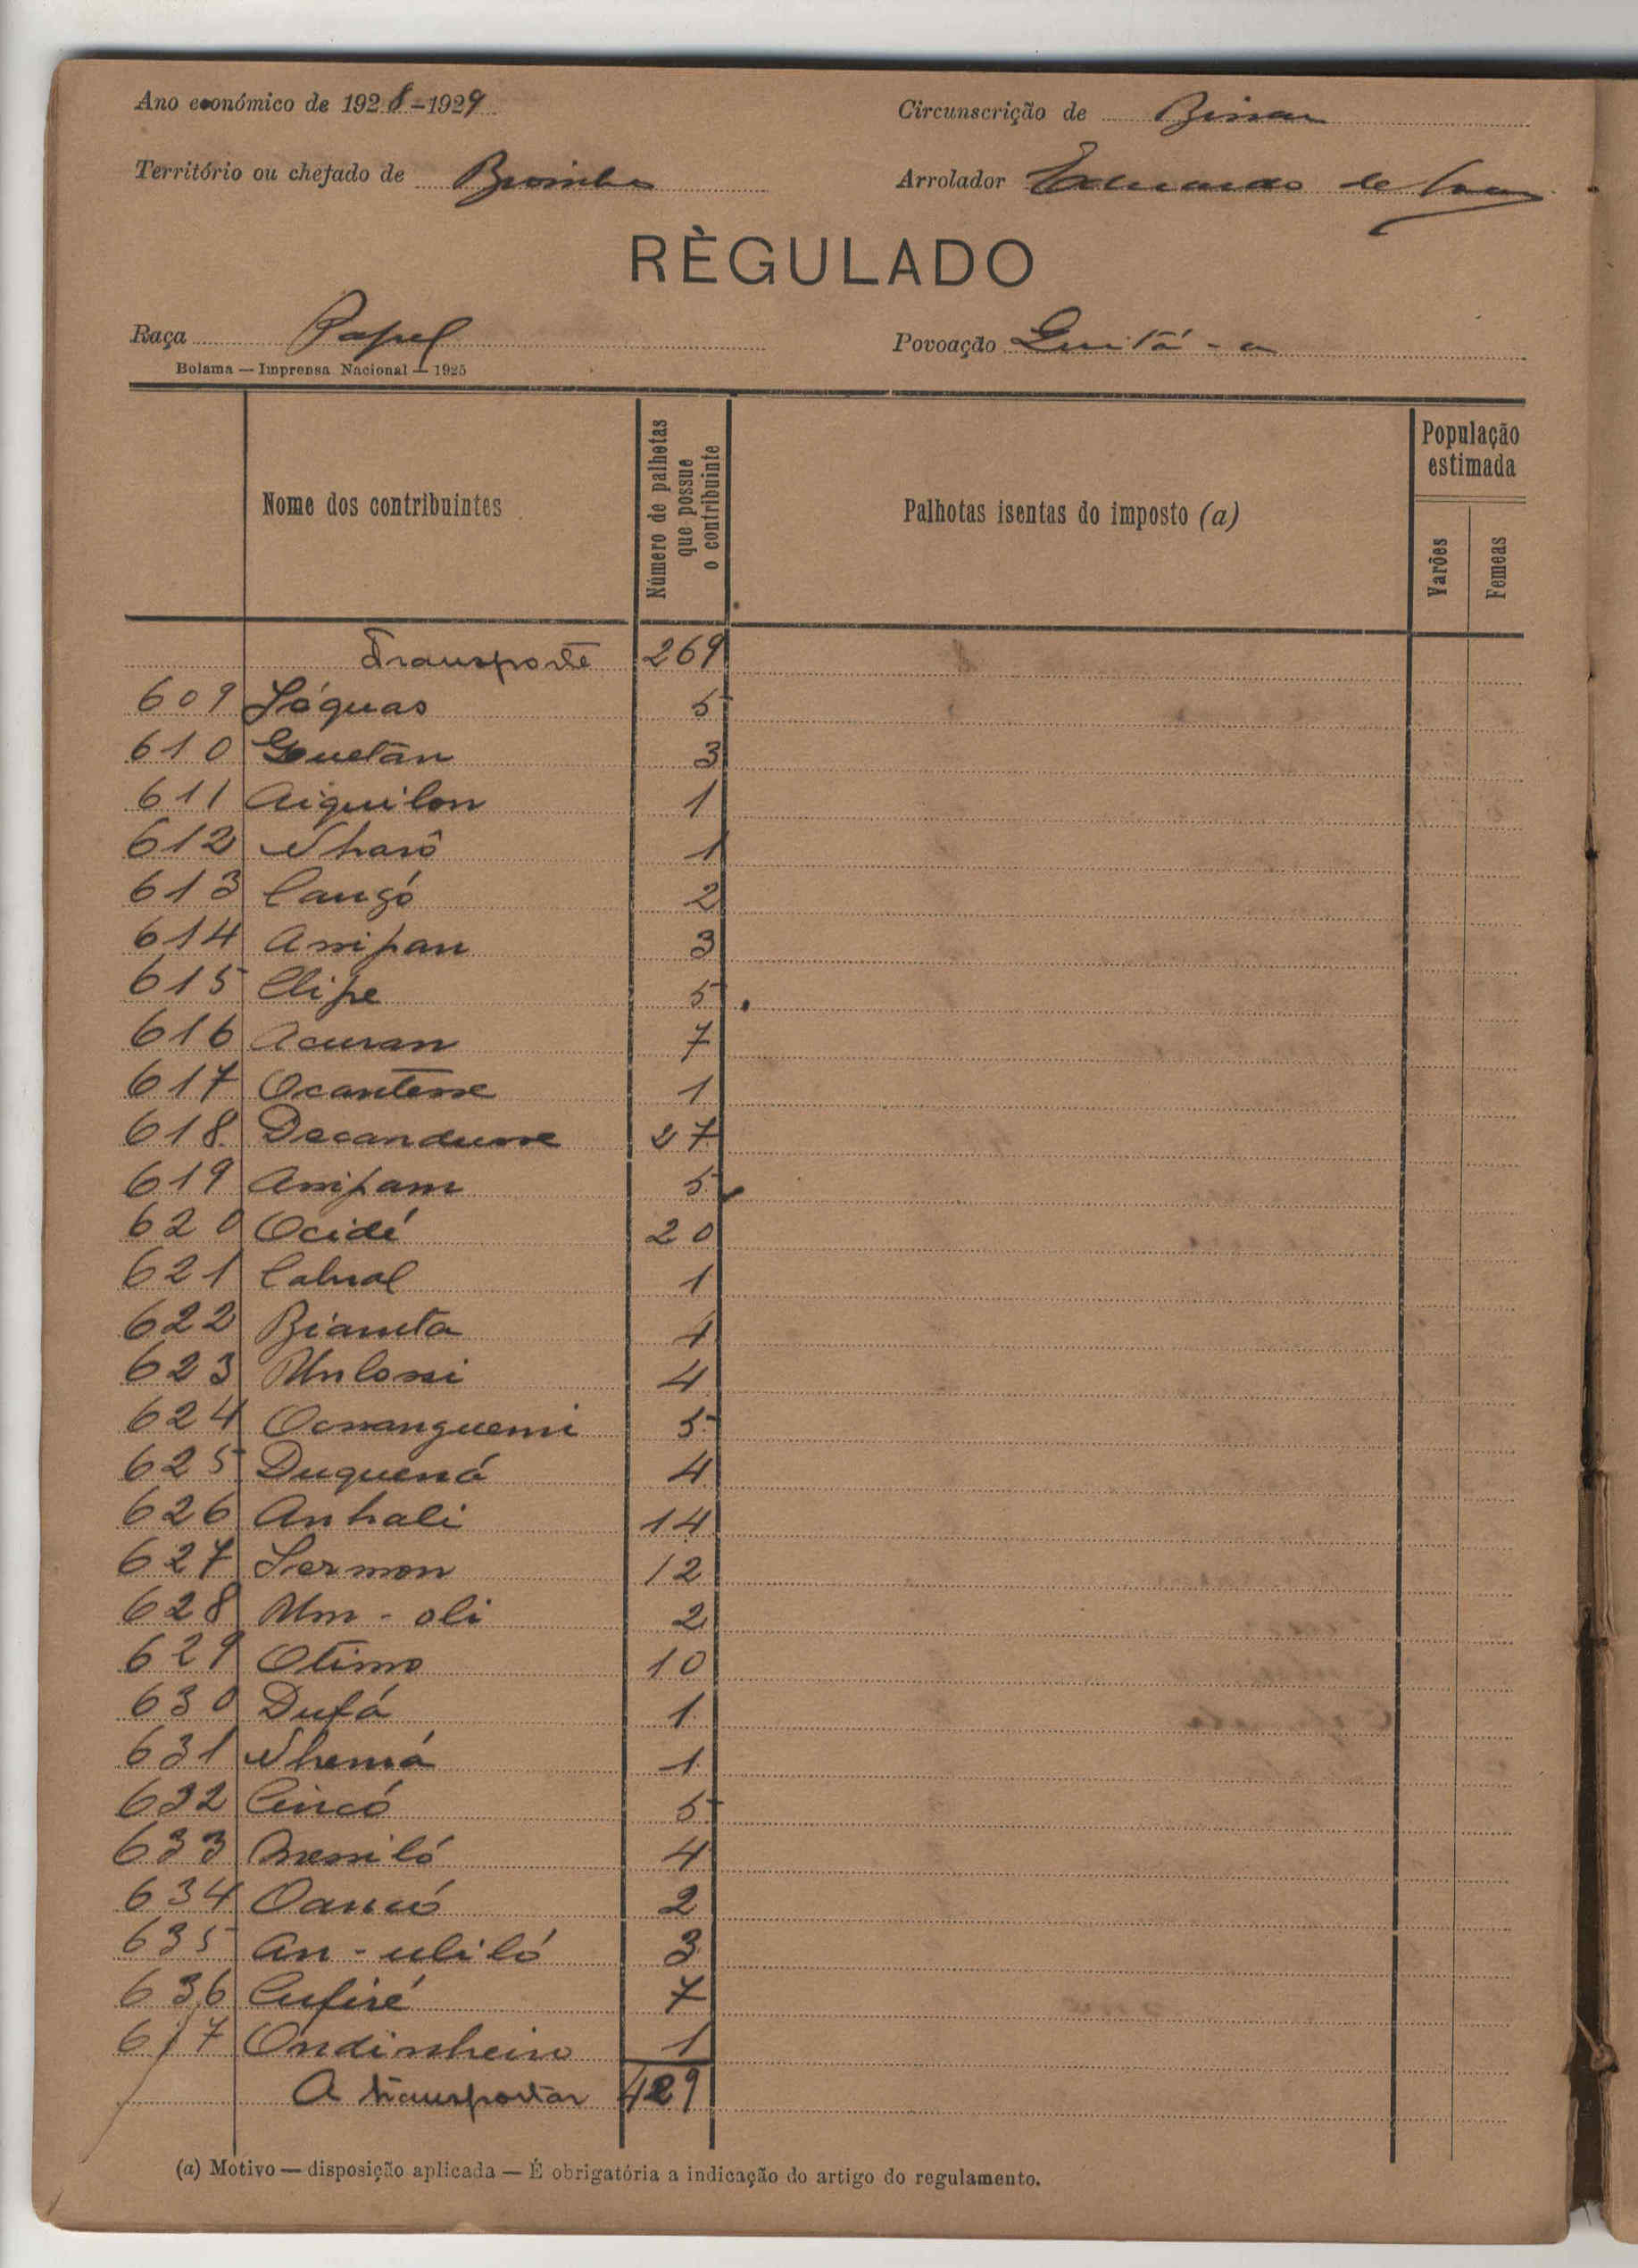 Ano económico de 1928-1929
Circunscrição de Bissau
Território ou chefado de
Arrolador Eduardo de
RÈGULADO
Raça Papel
Povoação Quitá-a
Bolama — Imprensa Nacional — 1925
Nome dos contribuintes
Número de palhotas que possue o contribuinte
Palhotas isentas do imposto (a)
População estimada
Varões
Femeas
Transporte 269
609 Sóguas 5
610 Guetan 3
611 Aiquilon 1
612 Nharô 1
613 Cangó 2
614 Assipan 3
615 Clipe 5
616 Acuran 7
617 Ocantesse 1
618 Decandusse 27
619 Assipam 5
620 Ocidé 20
621 Cabral 1
622 Bianeta 1
623 Unlossi 4
624 Ocssanguemi 5
625 Duquená 4
626 Anhali 14
627 Sermon 12
628 Um-oli 2
629 Otimo 10
630 Dufá 1
631 Nhemá 1
632 Cincó 5
633 4
634 2
635 An-ubiló 3
636 Cufiré 7
617 Ondinheiro 1
A transportar 429
(a) Motivo — disposição aplicada — É obrigatória a indicação do artigo do regulamento.